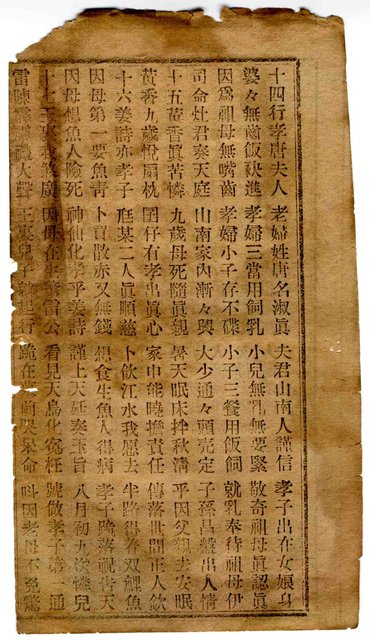 十四行孝唐夫人 老婦姓唐名淑眞 夫君山南人謹信 孝子出在女娘身
婆々無齒飯袂進 孝婦三當用飼乳 小兒無乳無要緊 散奇祖母眞認眞
因爲祖母無嘴齒 孝婦小子存不碟 小子三餐用飯飼 就乳奉待祖母伊
司命灶君奏天庭 山南家內漸々興 大少通々頭壳定 子孫昌盛出人情
十五董香眞苦憐 九歲母死隨眞親 暑天眠床拌秋凊 平因父親去安眠
黃香九歲悅扇枕 囝仔有孝出眞心 家中能曉擔責任 傳落世間正人欽
十六姜詩亦孝子 庭某二人眞順慈 卜飲江水我愿去 半路得着双鯉魚
因母第一要魚靑 卜買散赤又無錢 想食生魚人得病 孝子跪落祝告天
因母想魚人險死 神仙化孝乎姜詩 謹上天廷奏玉旨 八月初九湊憐兒
十七王裒 因母在生驚雷公 看見天烏化冤枉 號做孝子第一通
雷陳 大聲 王裒兒子就起行 跪在 前哭呆命 叫因老母不免驚